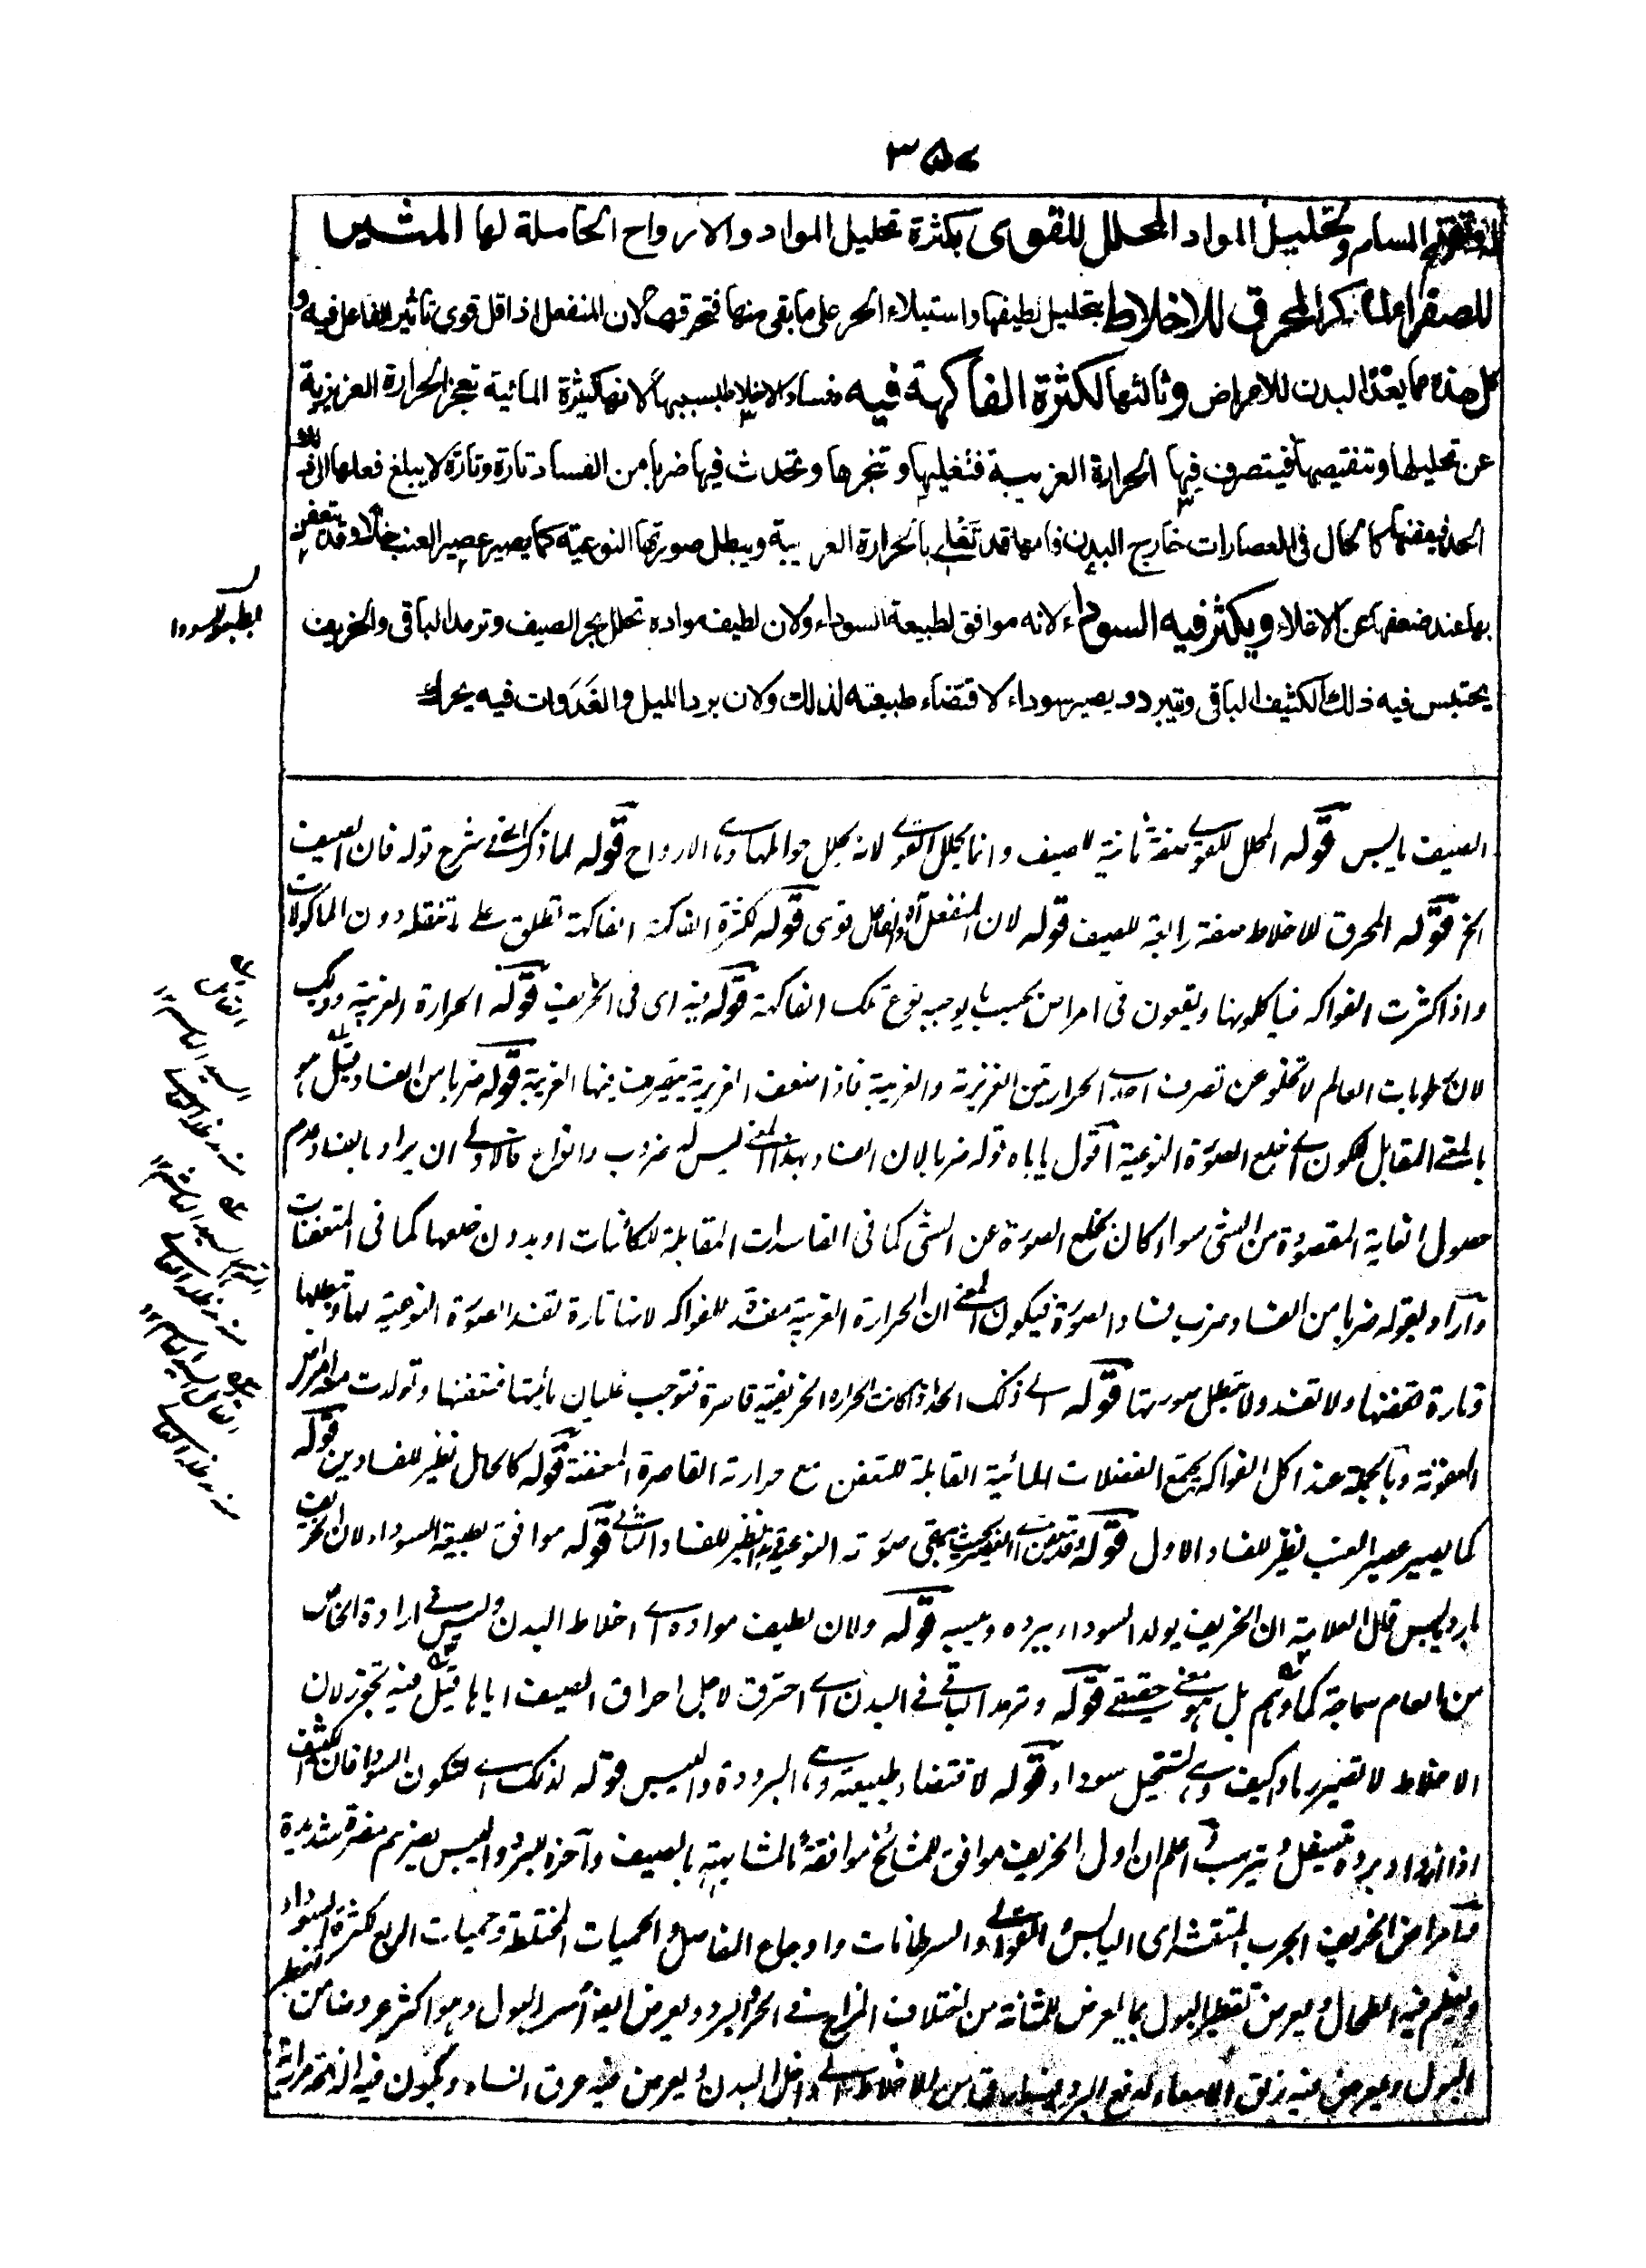 ٣٥٧
المسام وتحليل المواد المحلل للقوى بكثرة تحليل المواد والارواح الحاملة لها المثير
للصفراء لما ذكر المحرق للاخلاط بتحليل لطيفها واستيلاء الحر على ما بقى منها فتحرقها لان المنفعل اذا قل قوى تاثير الفاعل فيه و
كل هذه مما يعد البدن للامراض وثالثها لكثرة الفاكهة فيه وفساد الاخلاط بسببها لانها كثيرة المائية تعجز الحرارة الغريزية
عن تحليلها وتنقيصها فيتصرف فيها الحرارة الغريبة فتغليها وتبخرها وتحدث فيها ضربا من الفساد تارة وتارة لا يبلغ فعلها الى ذلك
الحد فيعفنها كالحال فى العصارات خارج البدن فانها قد تغلى بالحرارة الغريبة ويبطل صورتها النوعية كما يصير عصير العنب خلا وقد يتعفن
بها عند ضعفها عن الاغلاء ويكثر فيه السوداء لانه موافق لطبيعة السوداء ولان لطيف مواده تحلل بحر الصيف وترمد الباقى والخريف
يحتبس فيه ذلك الكثيف الباقى وتبرد ويصير سوداء لاقتضاء طبيعته لذلك ولان برد الليل والغدوات فيه يحرك
الصيف يابس قوله المحلل للقوى صفة ثانية للصيف وانما يحلل القوى لانه يحلل حواملها وهى الارواح قوله لما ذكر الخ فى شرح قوله فان الصيف
الخ قوله المحرق للاخلاط صفة رابعة للصيف قوله لان المنفعل قوى قوله لكثرة الفاكهة الفاكهة تطلق على ما تنقله دون الماكولات
واذا كثرت الفواكه فياكلونها ويقعون فى امراض بحسب ما يوجبه نوع تلك الفاكهة قوله فيه اى فى الخريف قوله الحرارة الغريبة وذلك
لان رطوبات العالم لا تخلو عن تصرف احدى الحرارتين الغريزية والغريبة فاذا ضعف الغريزية يتصرف فيها الغريبة قوله ضربا من الفساد قيل هو
بالمعنى المقابل للكون اى خلع الصورة النوعية اقول ياباه قوله ضربا لان الفساد بهذا المعنى ليس له ضروب وانواع فالاولى ان يراد بالفساد عدم
حصول الغاية المقصودة من الشئ سواء كان بخلع الصورة عن الشئ كما فى الفاسدات المقابلة للكائنات او بدون خلعها كما فى المتعفنات
واراد بقوله ضربا من الفساد ضرب فساد الصورة فيكون المعنى ان الحرارة الغريبة مفسدة للفواكه لانها تارة تفسد الصورة النوعية لها وتبطلها
وتارة تعفنها ولا تفسد ولا تبطل صورتها قوله الى ذلك الحد اذا كانت الحرارة الخريفية قاصرة فتوجب غليان مائيتها فتعفنها وتولدت منه امراض
العفونة وبالجملة عند اكل الفواكه يجتمع الفضلات المائية القابلة للتعفن مع حرارته القاصرة المعفنة قوله كالحال نظير للفسادين قوله
كما يصير عصير العنب نظير للفساد الاول قوله وقد يتعفن بحيث يبقى صورته النوعية نظير للفساد الثانى قوله موافق لطبيعة السوداء لان الخريف
بارد يابس قال العلامة ان الخريف يولد السوداء ببرده ويبسه قوله ولان لطيف مواده اى اخلاط البدن وليس فى ارادة الخاص
من العام سماجة كما وهم بل هو معنى حقيقى قوله وترمد الباقى فى البدن اى احترق لاجل احراق الصيف اياها قيل فيه تجوز لان
الاخلاط لا تصير رمادا كيف وهى تستحيل سوداء قوله لاقتضاء طبيعته وهى البرودة واليبس قوله لذلك اى لتكون السوداء فان الكثيف
اذا ازداد برده تسفل ويترسب اعلم ان اول الخريف موافق للمشائخ موافقة ما لمشابهته بالصيف وآخره للبرد واليبس يضرهم مضرة شديدة
وامراض الخريف الجرب المتقشر اى اليابس والقوابى والسرطانات واوجاع المفاصل والحميات المختلطة وحميات الربع لكثرة السوداء
ويعظم فيه الطحال ويعرض تقطير البول بما يعرض للمثانة من اختلاف المزاج فى الحر والبرد ويعرض ايضا اسر البول وهو اكثر عروضا من
البول ويعرض فيه زلق الامعاء لدفع البرد فيه ما رق من الاخلاط الى داخل البدن ويعرض فيه عرق النساء وتكون فيه الذبحة مرارية